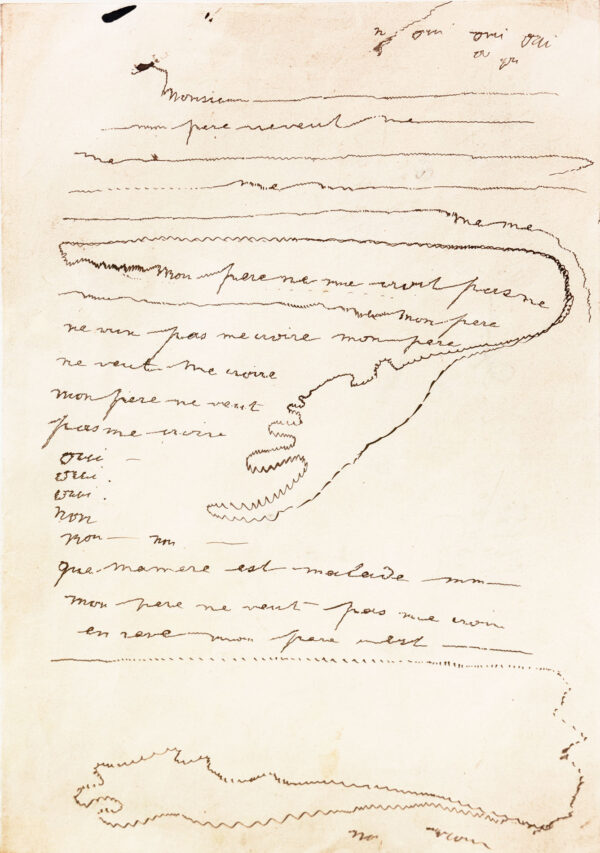 n oui oui oui
Monsieur
mon pere neveut me
me
me
me me
Mon pere ne me croit pas ne
mon pere
ne veux pas me croire mon pere
ne veut me croire
mon pere ne veut
pas me croire
oui
oui.
oui.
non
non non
que mamere est malade
mon pere ne veut pas me croir
en reve mon pere est